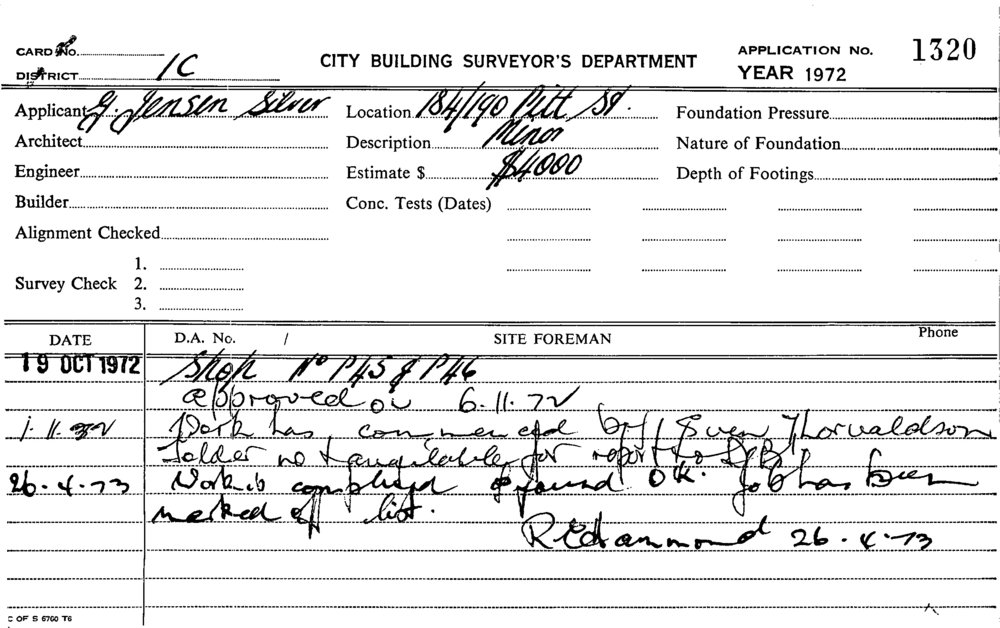 CARD No. CITY BUILDING SURVEYOR'S DEPARTMENT APPLICATION No. 1320
DISTRICT 1C YEAR 1972
Applicant G. Jensen Silver Location 184/190 Pitt St. Foundation Pressure
Architect Description Minor Nature of Foundation
Engineer Estimate $ $4000 Depth of Footings
Builder Conc. Tests (Dates)
Alignment Checked
1.
Survey Check 2.
3.
DATE D.A. No. / SITE FOREMAN Phone
19 OCT 1972 Shop No P45 & P46
approved on 6.11.72
Work has commenced by Sven Thorvaldson
Folder not available for report to
26.4.73 Work is completed & found OK. Job has been
marked off list.
R Hammond 26.4.73
C OF S 6760 T6